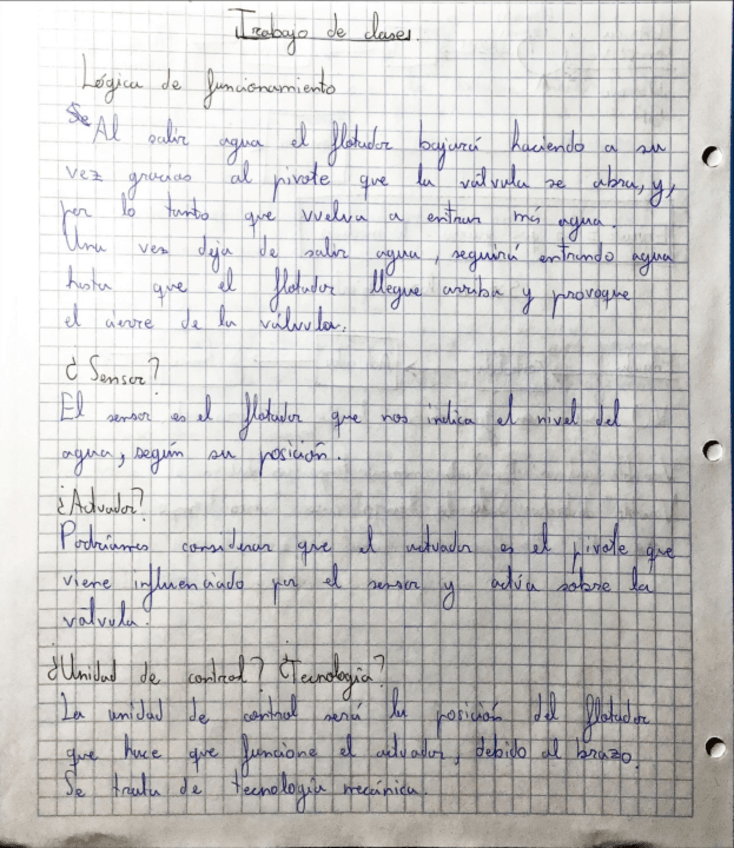 Trabajo de clases.
Lógica de funcionamiento
Al salir agua el flotador bajará haciendo a su
vez gracias al pivote que la válvula se abra, y,
por lo tanto que vuelva a entrar más agua.
Una vez deja de salir agua, seguirá entrando agua
hasta que el flotador llegue arriba y provoque
el cierre de la válvula.
¿Sensor?
El sensor es el flotador que nos indica el nivel del
agua, según su posición.
¿Actuador?
Podríamos considerar que el actuador es el pivote que
viene influenciado por el sensor y actúa sobre la
válvula.
¿Unidad de control? ¿Tecnología?
La unidad de control será la posición del flotador
que hace que funcione el actuador, debido al brazo.
Se trata de tecnología mecánica.